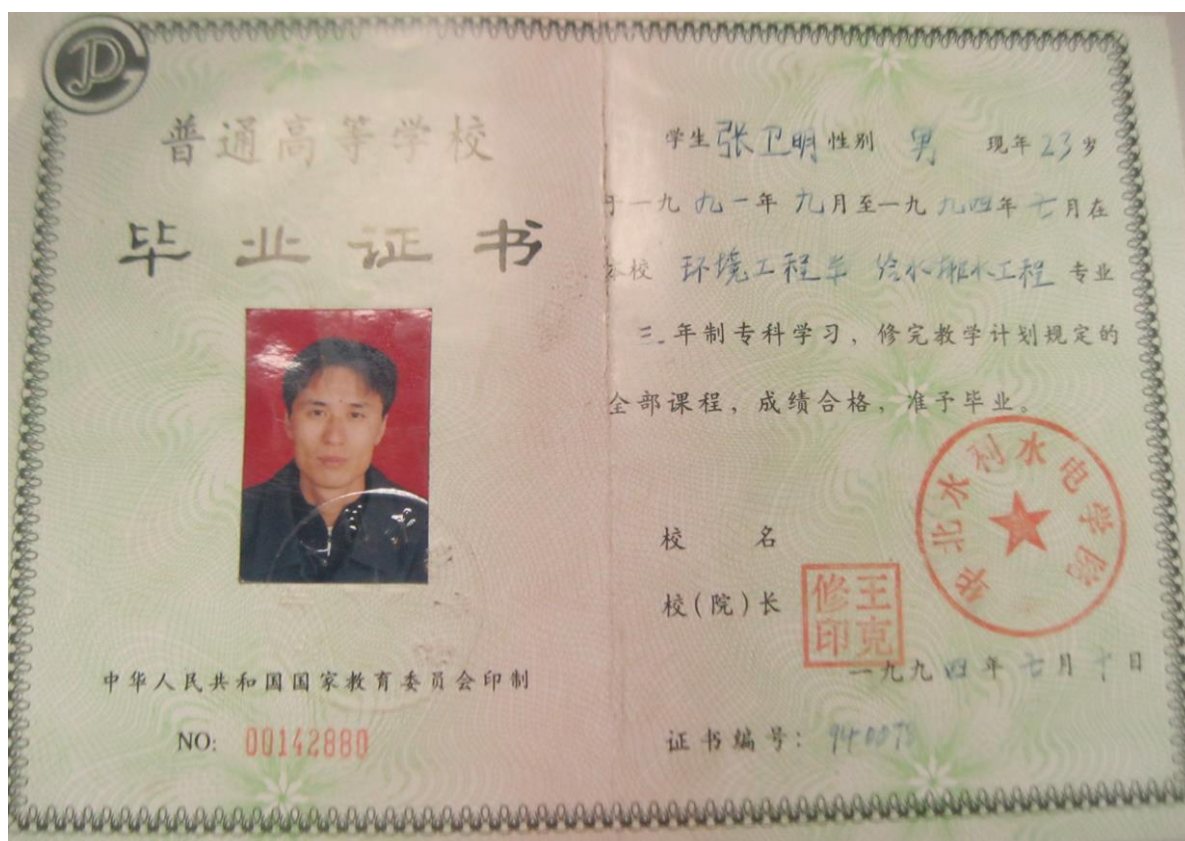 普通高等学校
毕业证书
中华人民共和国国家教育委员会印制
NO: 00142880
学生 张卫明 性别 男 现年 23 岁
于一九九一年九月至一九九四年七月在
本校 环境工程 给水排水工程 专业
三年制专科学习，修完教学计划规定的
全部课程，成绩合格，准予毕业。
华北水利水电学院
校名
校(院)长
王克修印
一九九四年七月十日
证书编号： 940078